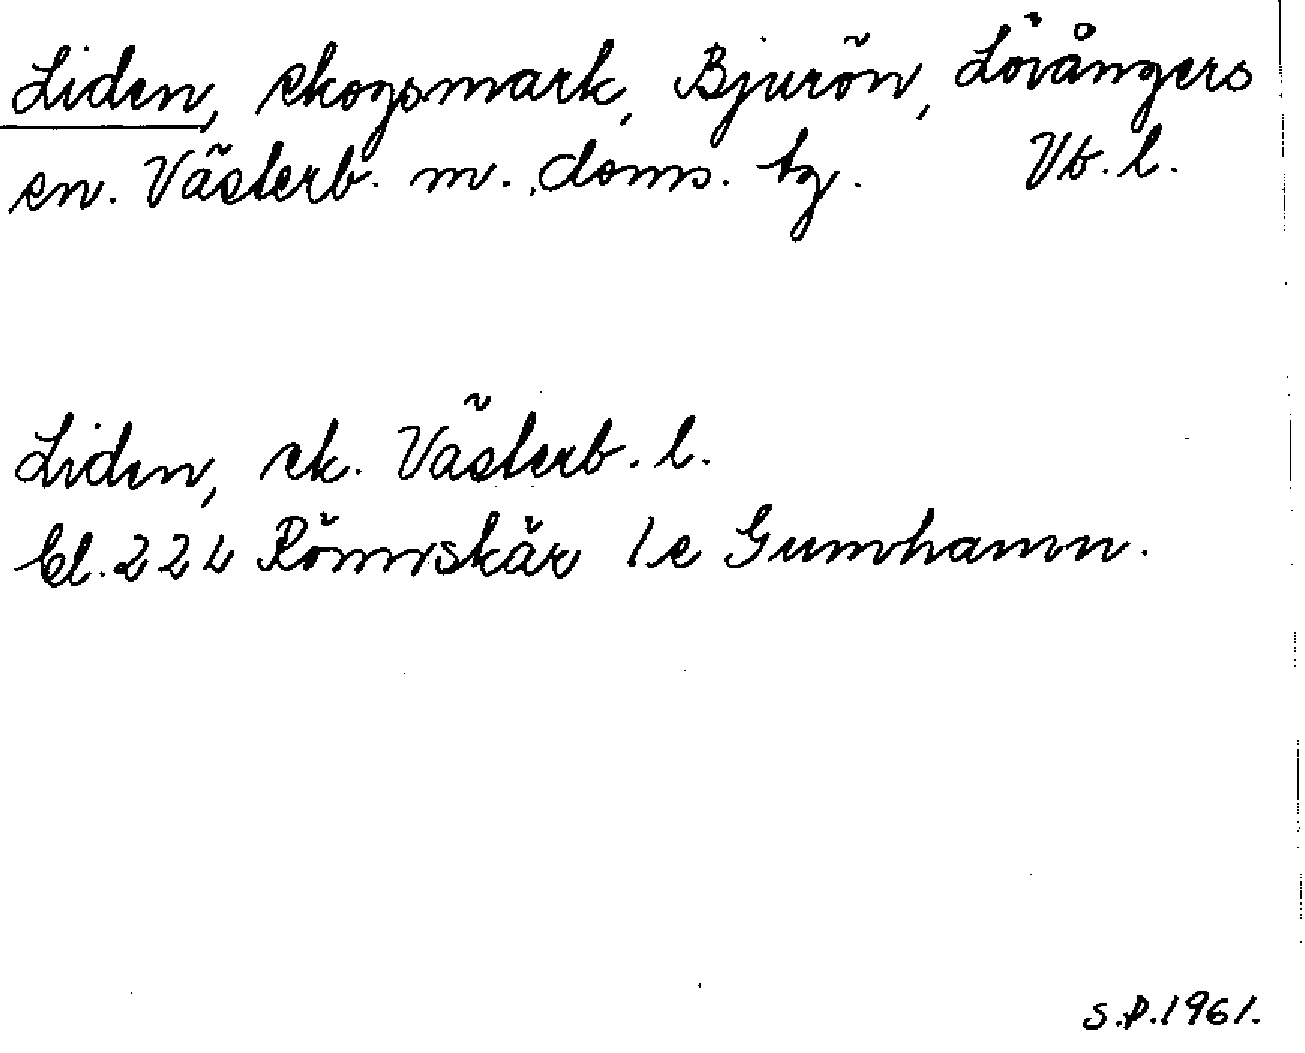 Liden, skogsmark, Bjurön, Lövångers
sn. Västerb. m. doms. tg. Vb. l.
Liden, sk. Västerb. l.
bl. 224 Rönnskär 1 c Gumhamn.
S.P. 1961.